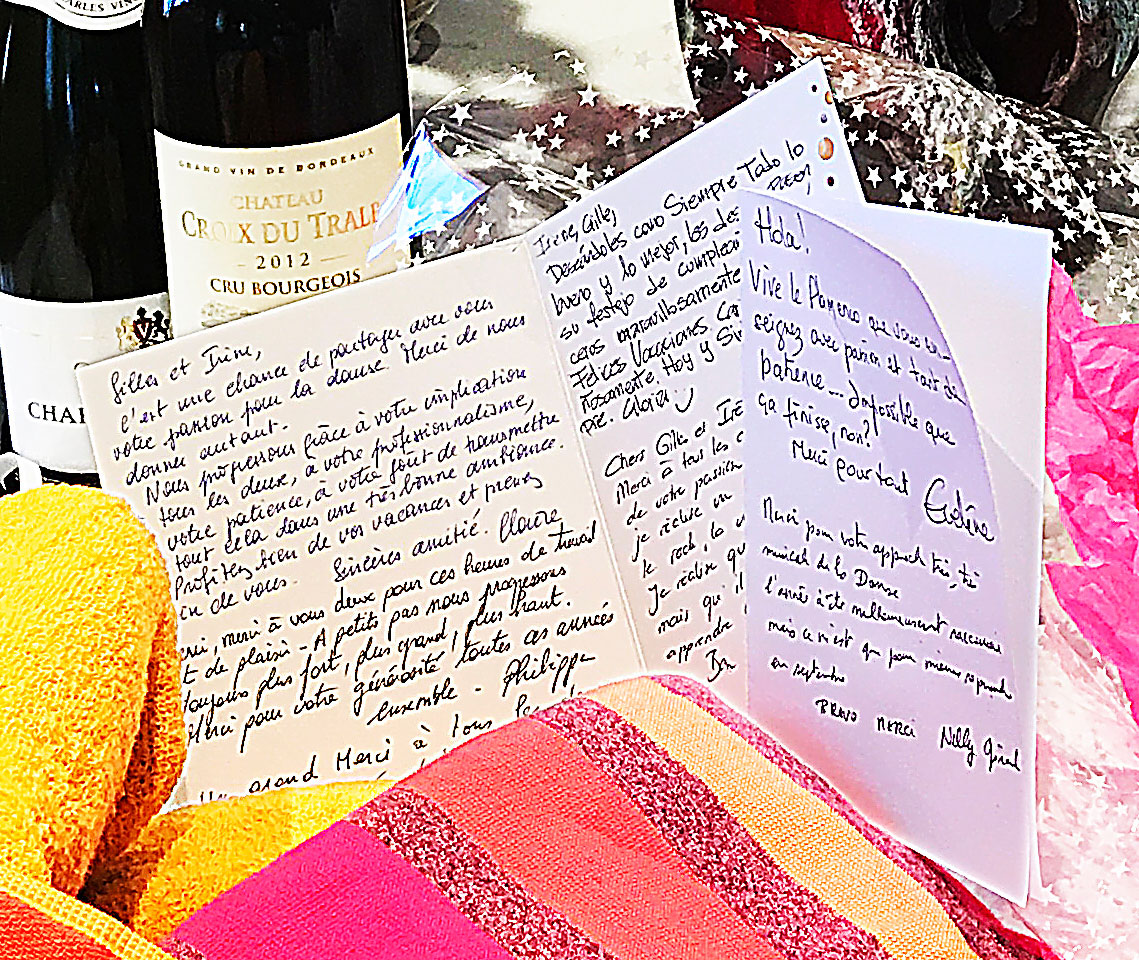 ARLES VIN
CHA
GRAND VIN DE BORDEAUX
CHATEAU
CROIX DU TRALE
2012
CRU BOURGEOIS
Gilles et Irène,
C'est une chance de partager avec vous
votre passion pour la danse. Merci de nous
donner autant.
Nous progressons grâce à votre implication
tous les deux, à votre professionnalisme,
votre patience, à votre goût de transmettre
tout cela dans une très bonne ambiance.
Profitez bien de vos vacances et prenez
in de vous. Sincères amitié. Claire
erci, merci à vous deux pour ces heures de travail
t de plaisir - A petits pas nous progressons
toujours plus fort, plus grand, plus haut.
Merci pour votre générosité toutes ces années
ensemble - Philippe
Un grand Merci à tous les
Irene, Gilles,
Deseándoles como Siempre Todo lo
bueno y lo mejor, los des
su festejo de cumpleañ
ceros maravillosamente
Felices Vacaciones Car
ñosamente. Hoy y Si
pre. Gloria
Chers Gilles et Irè
Merci à tous les
de votre passion
je réalise un
le rock, la
Je réalise qu
mais qu'il
apprendre
Hola!
Vive le Flamenco que vous en-
seignez avec passion et tant de
patience... Impossible que
ça finisse, non?
Merci pour tout Evelyne
Merci pour votre approche très, très
musicale de la Danse
l'année a été
mais ce n'est que pour mieux reprendre
en septembre
BRAVO MERCI Nelly